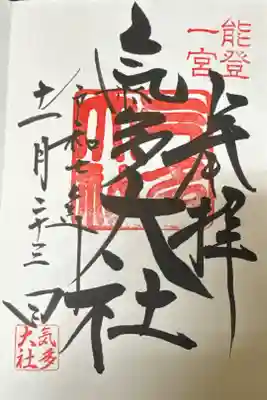 能登
一宮
奉拝
氣多大社
令和七年
十一月二十三日
気多
大社